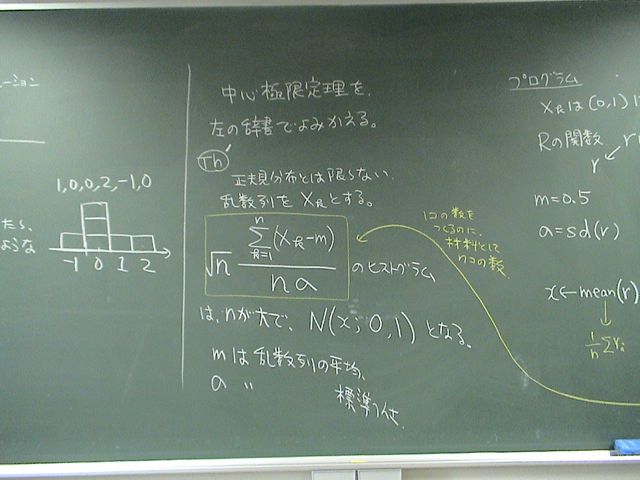 ーション
1,0,0,2,-1,0
たら、
ような
-1 0 1 2
中心極限定理を、
左の辞書でよみかえる。
Th
正規分布とは限らない
乱数列を X_k とする。
√n \frac{\sum_{k=1}^{n}(X_k-m)}{na} のヒストグラム
は、nが大で、N(x; 0, 1) となる。
mは乱数列の平均、
a 〃 標準偏差
1コの数を
つくるのに、
材料として
nコの数
プログラム
X_k は (0,1)
Rの関数 r
r
m=0.5
a=sd(r)
x←mean(r)
\frac{1}{n}Σr_i